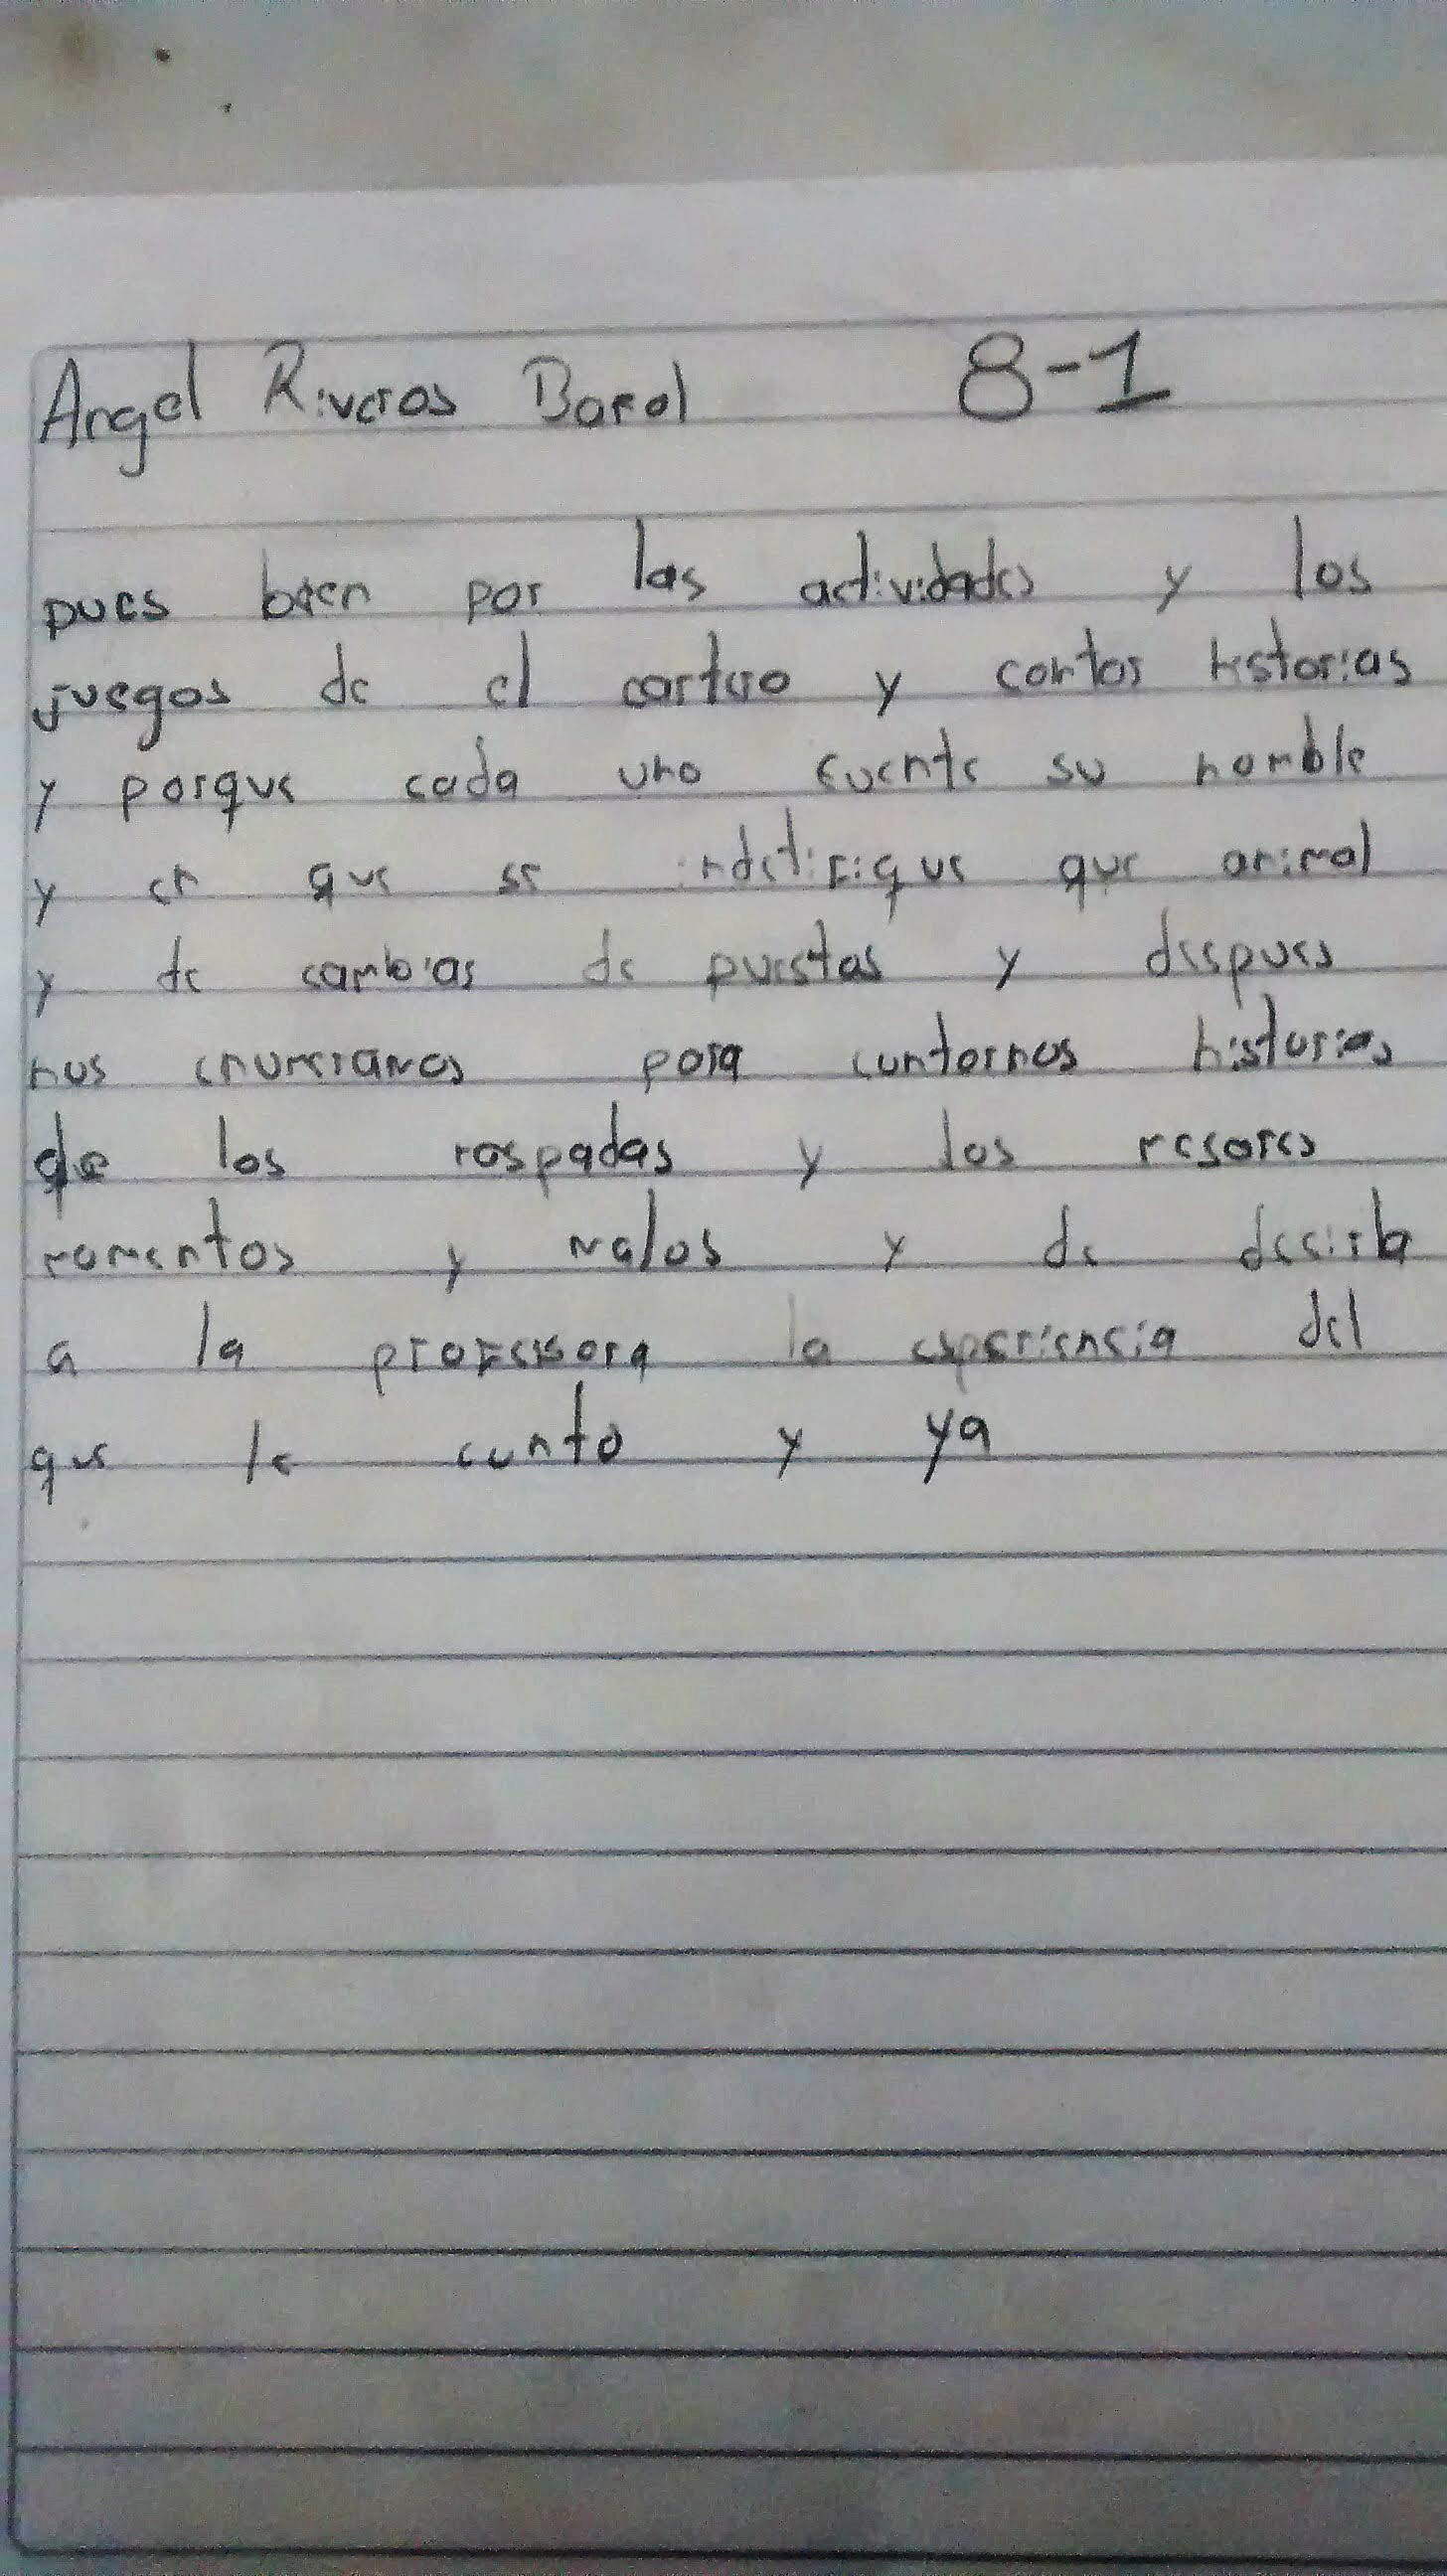 Angel Riveros Borol 8-1
pues bien por las actividades y los
juegos de el cartero y contos historias
y porque cada uno cuente su nomble
y en que se indetifique que animal
y de cambias de puestas y despues
nos enumeramos pora contornos historias
de los raspadas y los mesores
momentos y malos y de desirla
a la profesora la esperiensia del
que le conto y ya